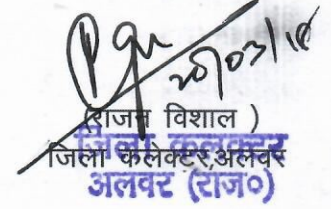 20/03/18
(राजन विशाल )
जिला कलक्टर
जिला कलेक्टर,अलवर
अलवर (राज०)